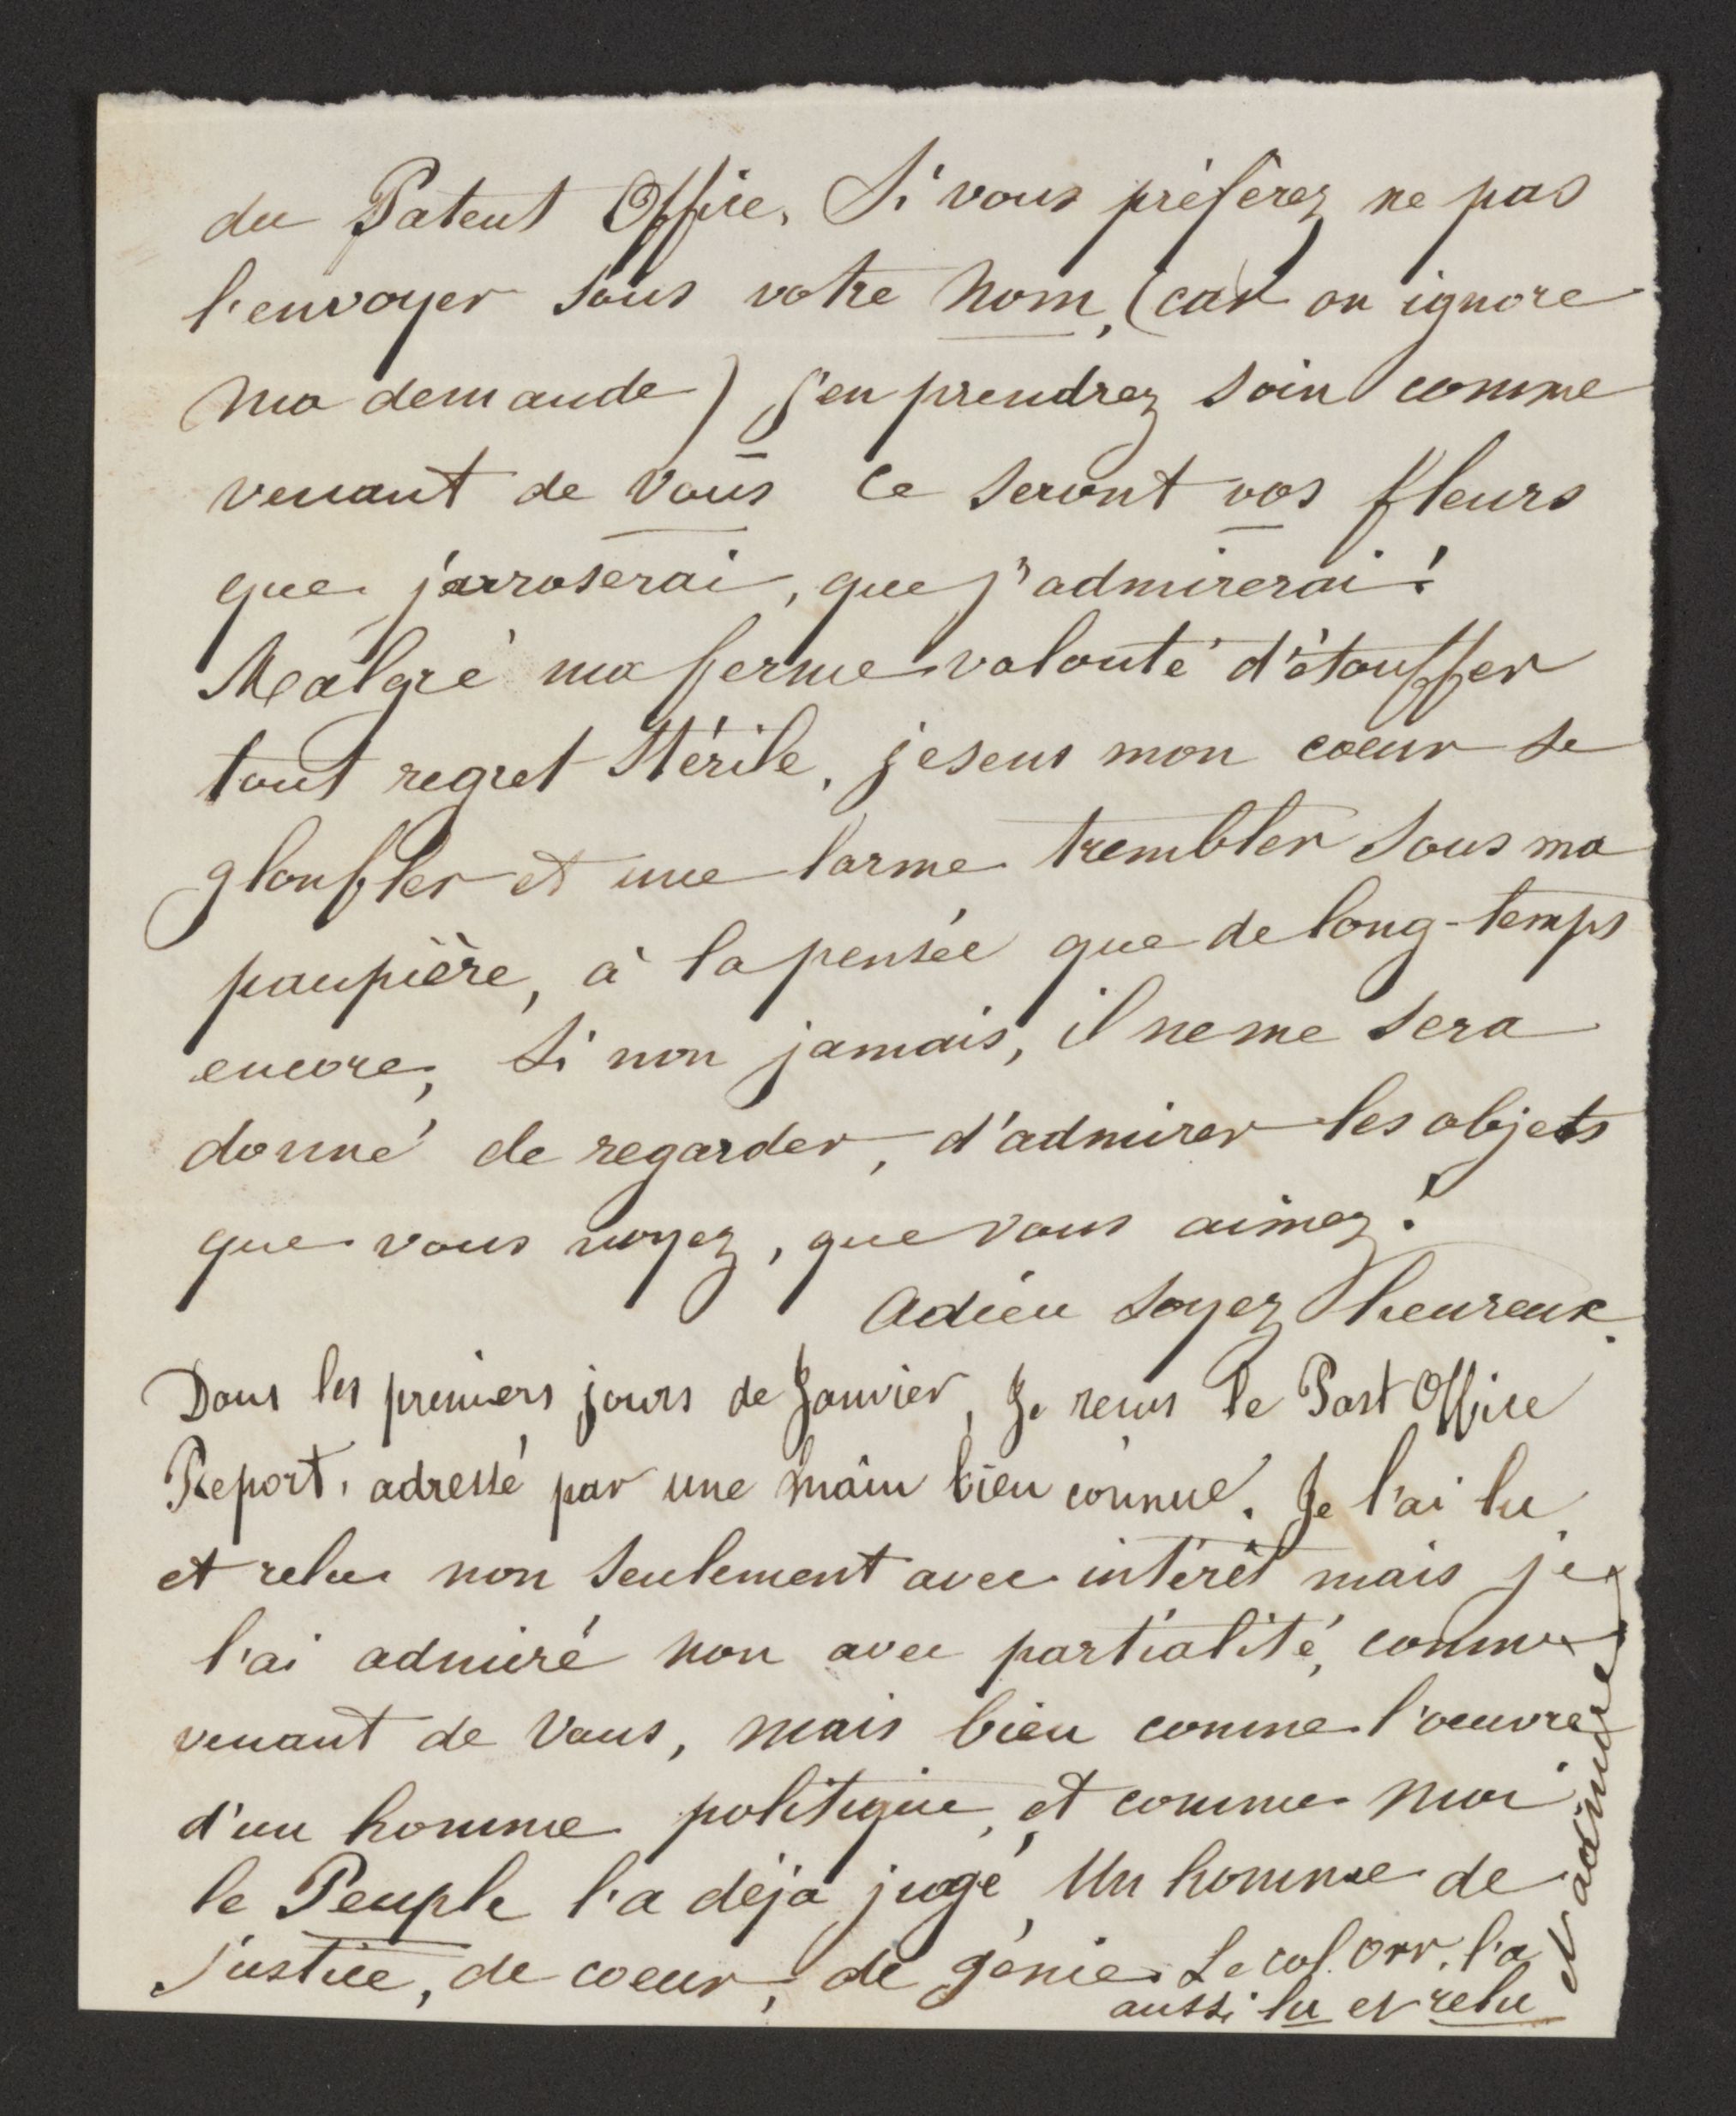 du Patent Office, Si vous préférez ne pas
l'envoyer sous votre nom, (car on ignore
ma demande) j'en prendrez soin comme
venant de vous ce seront vos fleurs
que j'arroserai, que j'admirerai!
Malgré ma ferme volonté d'étouffer
tout regret stérile, je sens mon coeur se
glonfler et une larme trembler sous ma
paupière, à la pensée que de long-temps
encore, si non jamais, il ne me sera
donné de regarder, d'admirer les objets
que vous voyez, que vous aimez!
Adieu soyez heureux.
Dans les premiers jours de Janvier, Je recus le Post Office
Report, adressé par une main bien connue. Je l'ai lu
et relu non seulement avec intérêt mais je
l'ai admiré non avec partialité, comme
venant de Vous, mais bien comme l'oeuvre
d'un homme politique, et comme moi
le Peuple l'a déja jugé, Un homme de
justice, de coeur, de génie. Le col. Orr. l'a
aussi lu et relu
et admiré